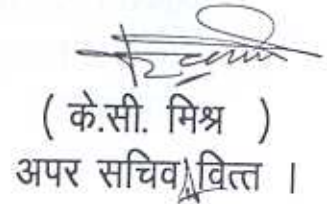 ( के.सी. मिश्र )
अपर सचिव, वित्त ।